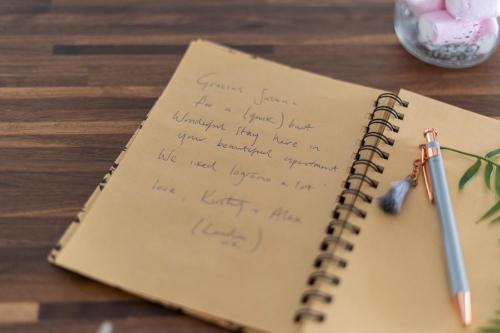 Gracias Susana
for a (quick) but
Wonderful stay here in
your beautiful apartment
We liked logroño a lot
love, Kirsty + Alex
(London
UK)